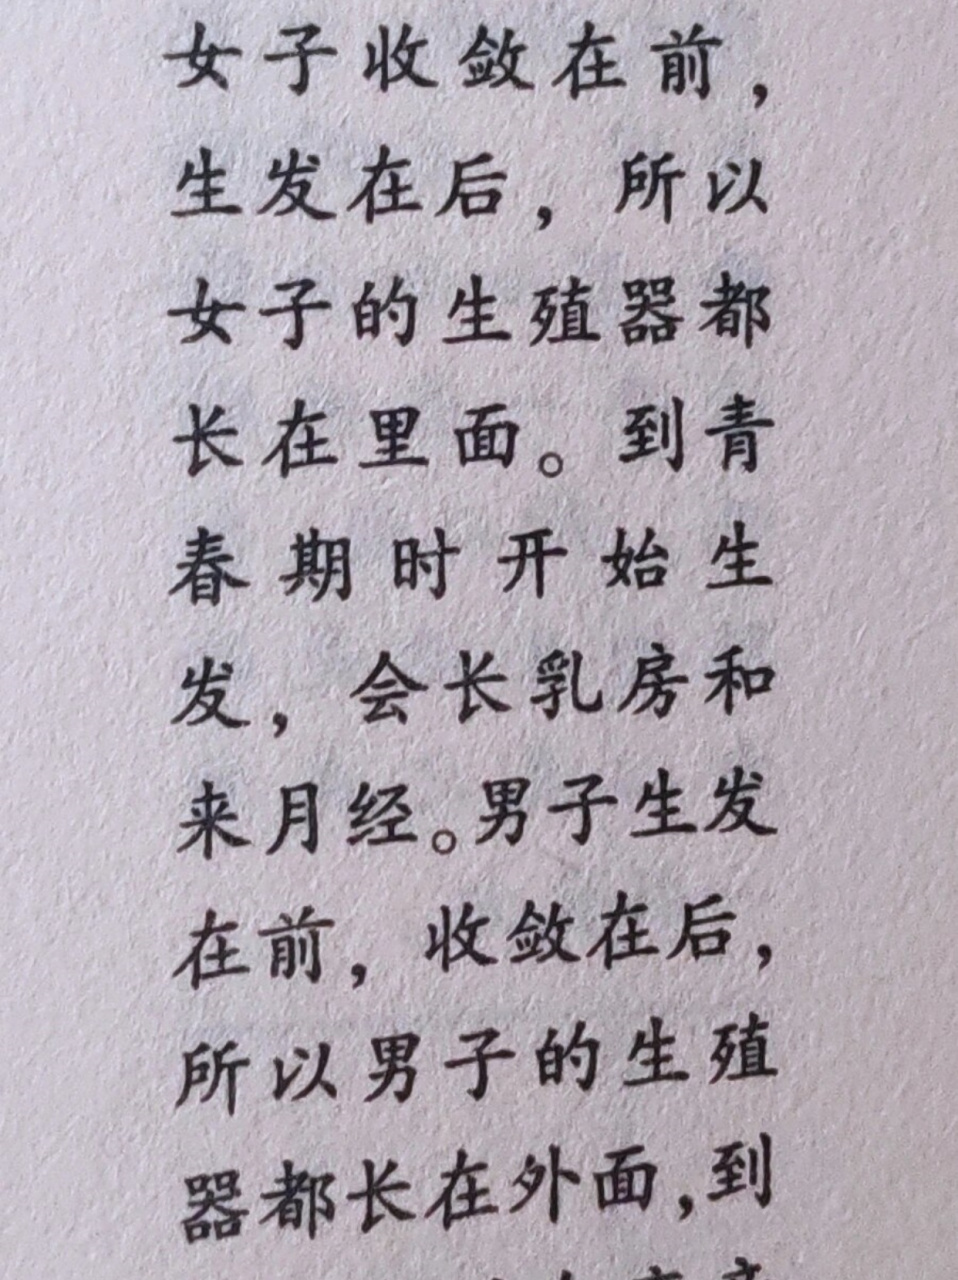 女子收敛在前，
生发在后，所以
女子的生殖器都
长在里面。到青
春期时开始生
发，会长乳房和
来月经。男子生发
在前，收敛在后，
所以男子的生殖
器都长在外面，到